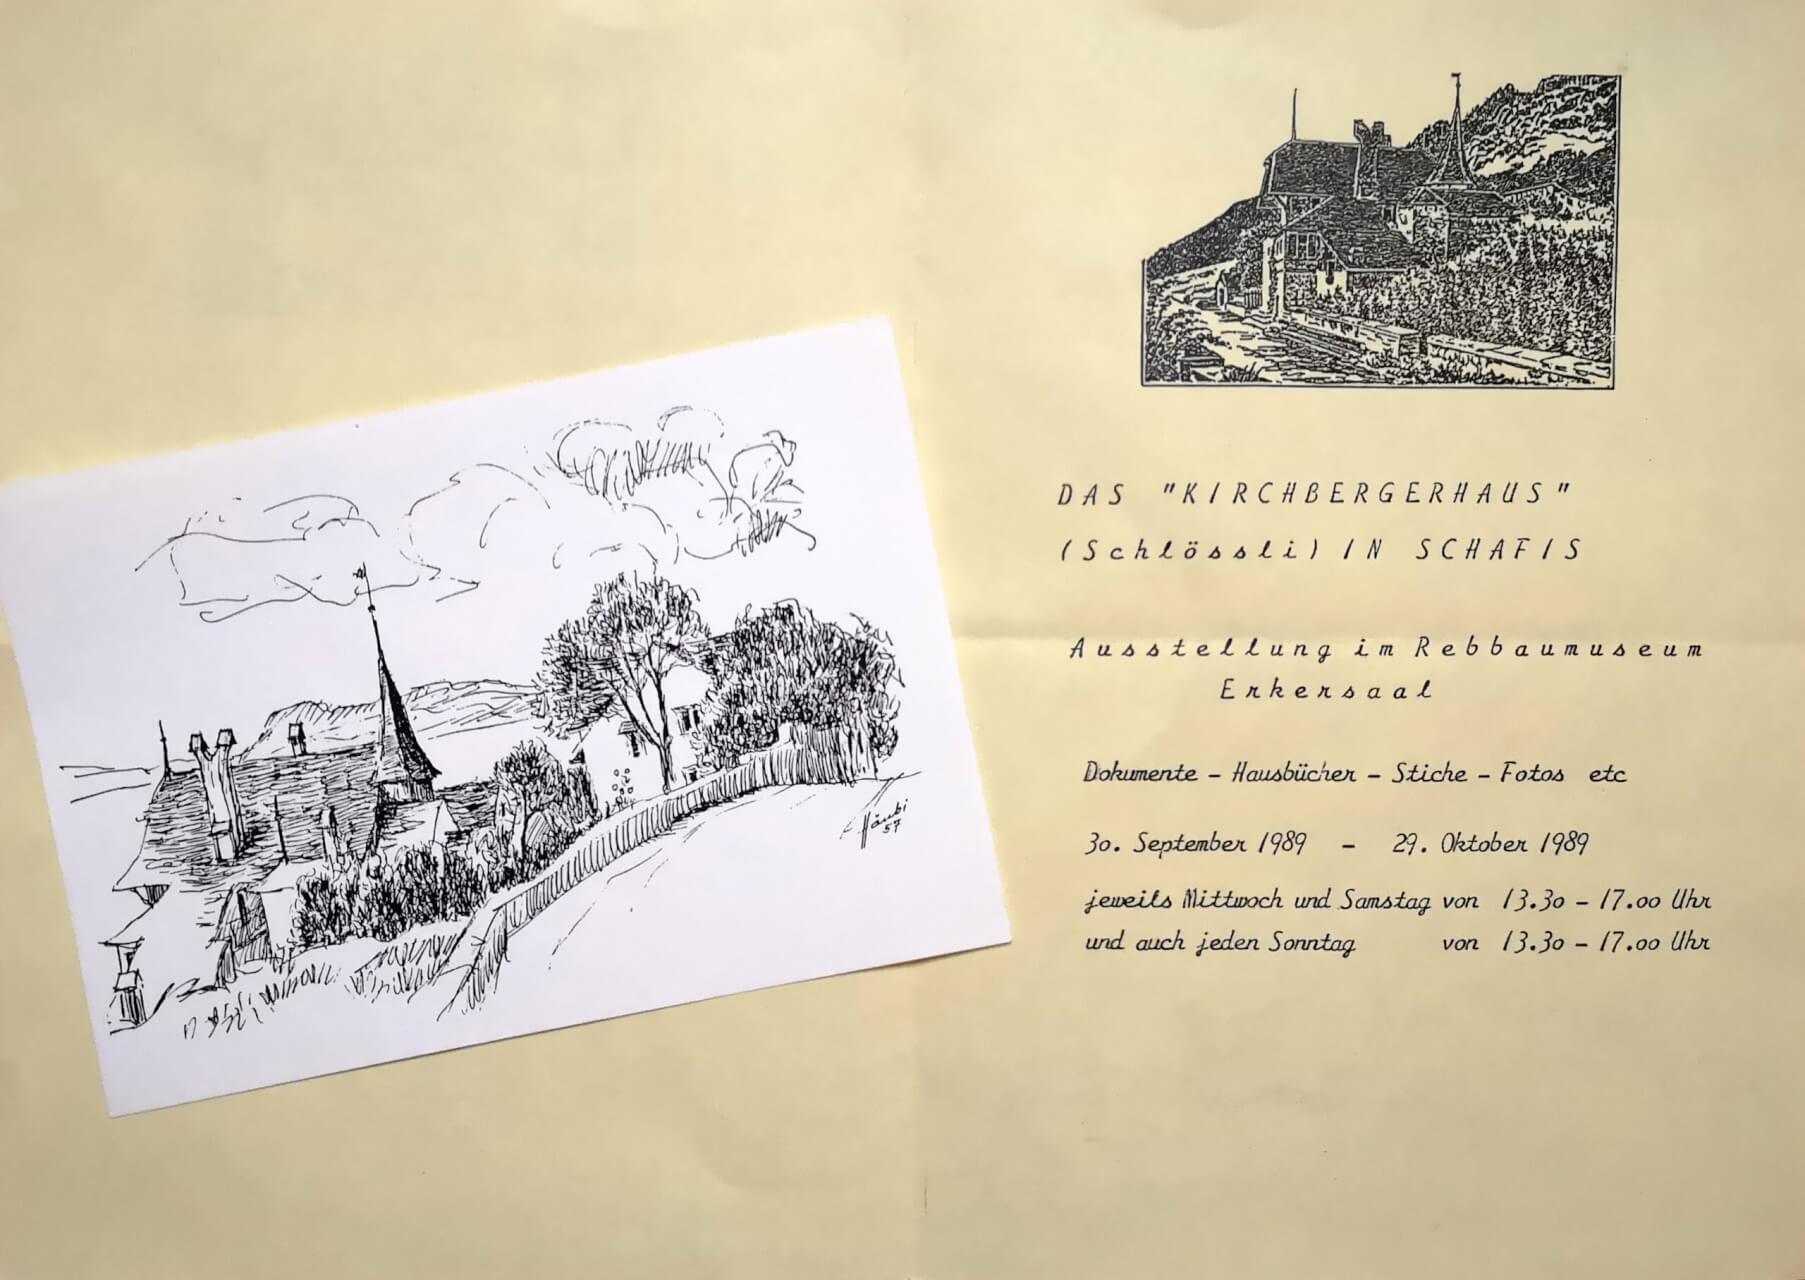 DAS "KIRCHBERGERHAUS"
(Schlössli) IN SCHAFIS
Ausstellung im Rebbaumuseum
Erkersaal
Dokumente - Hausbücher - Stiche - Fotos etc
30. September 1989 - 29. Oktober 1989
jeweils Mittwoch und Samstag von 13.30 - 17.00 Uhr
und auch jeden Sonntag von 13.30 - 17.00 Uhr
57